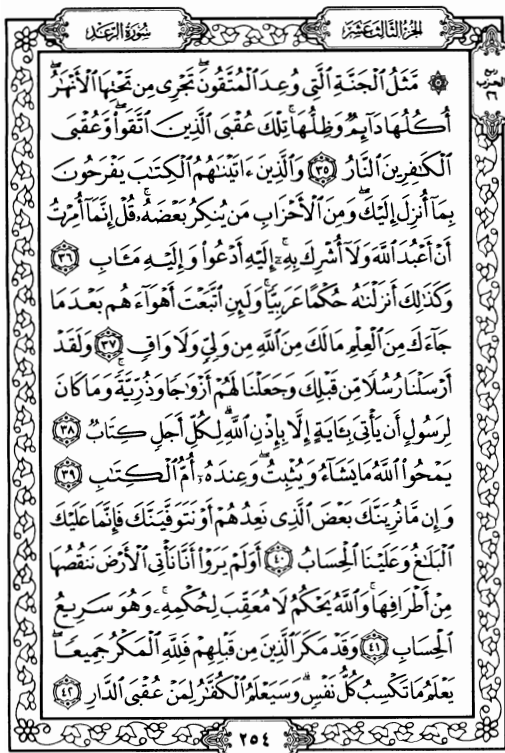 الجزء الثالث عشر
سورة الرعد
ربع
الحزب
٢٦
۞ مَّثَلُ الْجَنَّةِ الَّتِي وُعِدَ الْمُتَّقُونَ ۖ تَجْرِي مِن تَحْتِهَا الْأَنْهَٰرُ ۖ
أُكُلُهَا دَآئِمٌ وَظِلُّهَا ۚ تِلْكَ عُقْبَى الَّذِينَ اتَّقَوا۟ ۖ وَّعُقْبَى
الْكَٰفِرِينَ النَّارُ ۝٣٥ وَالَّذِينَ ءَاتَيْنَٰهُمُ الْكِتَٰبَ يَفْرَحُونَ
بِمَآ أُنزِلَ إِلَيْكَ ۖ وَمِنَ الْأَحْزَابِ مَن يُنكِرُ بَعْضَهُۥ ۚ قُلْ إِنَّمَآ أُمِرْتُ
أَنْ أَعْبُدَ اللَّهَ وَلَآ أُشْرِكَ بِهِۦٓ ۚ إِلَيْهِ أَدْعُوا۟ وَإِلَيْهِ مَـَٔابِ ۝٣٦
وَكَذَٰلِكَ أَنزَلْنَٰهُ حُكْمًا عَرَبِيًّا ۚ وَلَئِنِ اتَّبَعْتَ أَهْوَآءَهُم بَعْدَمَا
جَآءَكَ مِنَ الْعِلْمِ مَا لَكَ مِنَ اللَّهِ مِن وَلِيٍّ وَلَا وَاقٍ ۝٣٧ وَلَقَدْ
أَرْسَلْنَا رُسُلًا مِّن قَبْلِكَ وَجَعَلْنَا لَهُمْ أَزْوَٰجًا وَذُرِّيَّةً ۚ وَمَا كَانَ
لِرَسُولٍ أَن يَأْتِيَ بِـَٔايَةٍ إِلَّا بِإِذْنِ اللَّهِ ۗ لِكُلِّ أَجَلٍ كِتَابٌ ۝٣٨
يَمْحُوا۟ اللَّهُ مَا يَشَآءُ وَيُثْبِتُ ۖ وَعِندَهُۥٓ أُمُّ الْكِتَٰبِ ۝٣٩
وَإِن مَّا نُرِيَنَّكَ بَعْضَ الَّذِي نَعِدُهُمْ أَوْ نَتَوَفَّيَنَّكَ فَإِنَّمَا عَلَيْكَ
الْبَلَٰغُ وَعَلَيْنَا الْحِسَابُ ۝٤٠ أَوَلَمْ يَرَوْا۟ أَنَّا نَأْتِي الْأَرْضَ نَنقُصُهَا
مِنْ أَطْرَافِهَا ۚ وَاللَّهُ يَحْكُمُ لَا مُعَقِّبَ لِحُكْمِهِۦ ۚ وَهُوَ سَرِيعُ
الْحِسَابِ ۝٤١ وَقَدْ مَكَرَ الَّذِينَ مِن قَبْلِهِمْ فَلِلَّهِ الْمَكْرُ جَمِيعًا ۖ
يَعْلَمُ مَا تَكْسِبُ كُلُّ نَفْسٍ ۗ وَسَيَعْلَمُ الْكُفَّٰرُ لِمَنْ عُقْبَى الدَّارِ ۝٤٢
٢٥٤